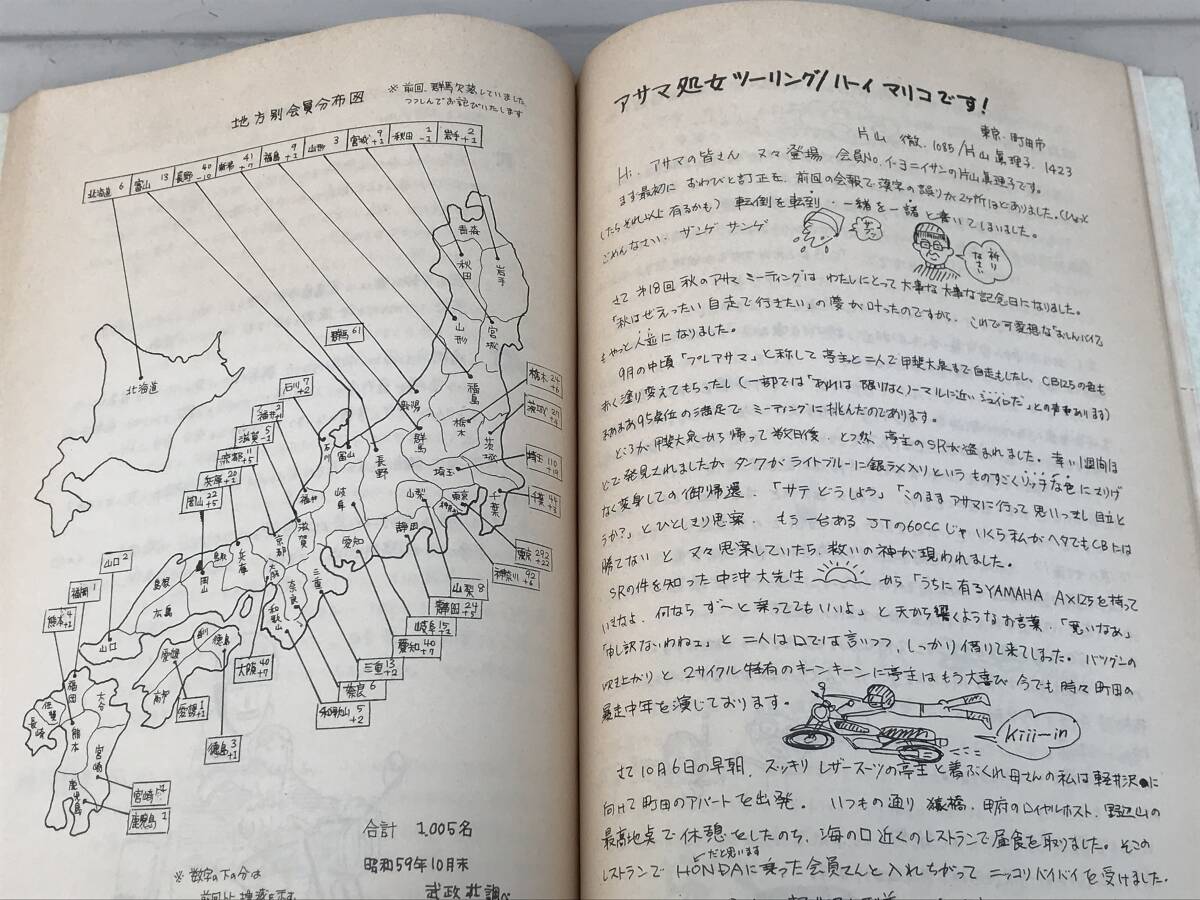 地方別会員分布図
※前回、群馬欠落していました
つつしんでお詫びいたします
北海道 6
富山 13
長野 40 -10
新潟 41 +7
福島 9 +1
山形 3
宮城 9 +1
秋田 1 -1
岩手 2 +1
群馬 61
石川 7 +2
滋賀 5 -1
京都 11 +5
兵庫 20 +1
岡山 22 +5
山口 2
福岡 1
熊本 4 +1
栃木 24 +6
埼玉 110
千葉 44 +3
東京 292 +22
神奈川 92 +6
山梨 8
静岡 24 +5
岐阜 15 +2
愛知 40 +7
三重 13 +2
奈良 6
和歌山 5 +2
大阪 40 +7
愛媛 1 +1
徳島 3 +1
宮崎
鹿児島 1
北海道
青森
秋田
岩手
山形
宮城
福島
新潟
群馬
栃木
茨城
埼玉
千葉
東京
神奈川
山梨
長野
静岡
富山
石川
福井
岐阜
愛知
滋賀
三重
京都
奈良
大阪
和歌山
兵庫
鳥取
岡山
島根
広島
山口
香川
徳島
愛媛
高知
福岡
佐賀
長崎
大分
熊本
宮崎
鹿児島
合計 1,005名
昭和59年10月末
武政 調べ
※数字の下の分は
アサマ処女ツーリング/ハーイ マリコです!
東京・町田市
片山 徹、1085/片山眞理子、1423
Hi、アサマの皆さん 又々登場 会員No.イーヨニイサンの片山眞理子です。
まず最初に おわびと訂正を、前回の会報で漢字の誤りが2ヶ所ほどありました。(ひょっと
したらそれ以上有るかも) 転倒を転到・一緒を一諸と書いてしまいました。
ごめんなさい、ザンゲ ザンゲ
祈りなさい
さて第18回秋のアサマミーティングは わたしにとって大事な大事な記念日になりました。
「秋はぜえったい自走で行きたい」の夢が叶ったのですから、これで可愛想な「おしんバイク」
もやっと人並になりました。
9月の中頃「プレアサマ」と称して亭主と二人で甲斐大泉まで自走もしたし、CB125の色も
赤く塗り変えてもらったし(一部では「あれは限りなくノーマルに近い だ」との声もあります)
まあまあ95点位の満足でミーティングに挑んだのであります。
ところが甲斐大泉から帰って数日後、とつ然、亭主のSRが盗まれました。幸い1週間ほ
どで発見されましたが タンクがライトブルーに銀ラメ入りというものすごくリッチな色にさりげ
なく変身しての御帰還、「サテどうしよう」「このままアサマに行って思いっきし目立と
うか?」とひとしきり思案、もう一台あるJTの60CCじゃいくら私がヘタでもCBには
勝てないと 又々思案していたら、救いの神が現われました。
SRの件を知った中沖大先生 から「うちに有るYAMAHA AX125を持って
いきなよ、何なら ず〜と乗っててもいいよ」と天から響くようなお言葉、「寛いなあ」
「申し訳ないわねェ」と二人は口では言いつつ、しっかり借りて来てしまった。バツグンの
吹き上がりと 2サイクル特有のキーンキーンに亭主はもう大喜び 今でも時々町田の
暴走中年を演じております。
Kiii-in
さて10月6日の早朝、スッキリ レザースーツの亭主と着ぶくれ母さんの私は軽井沢に
向けて町田のアパートを出発。いつもの通り 猿橋、甲府のロイヤルホスト、野辺山の
最高地点で休憩をしたのち、海の口近くのレストランで昼食を取りました。そこの
レストランでHONDAに乗った会員さんと入れちがって ニッコリバイバイを受けました。
だと思います